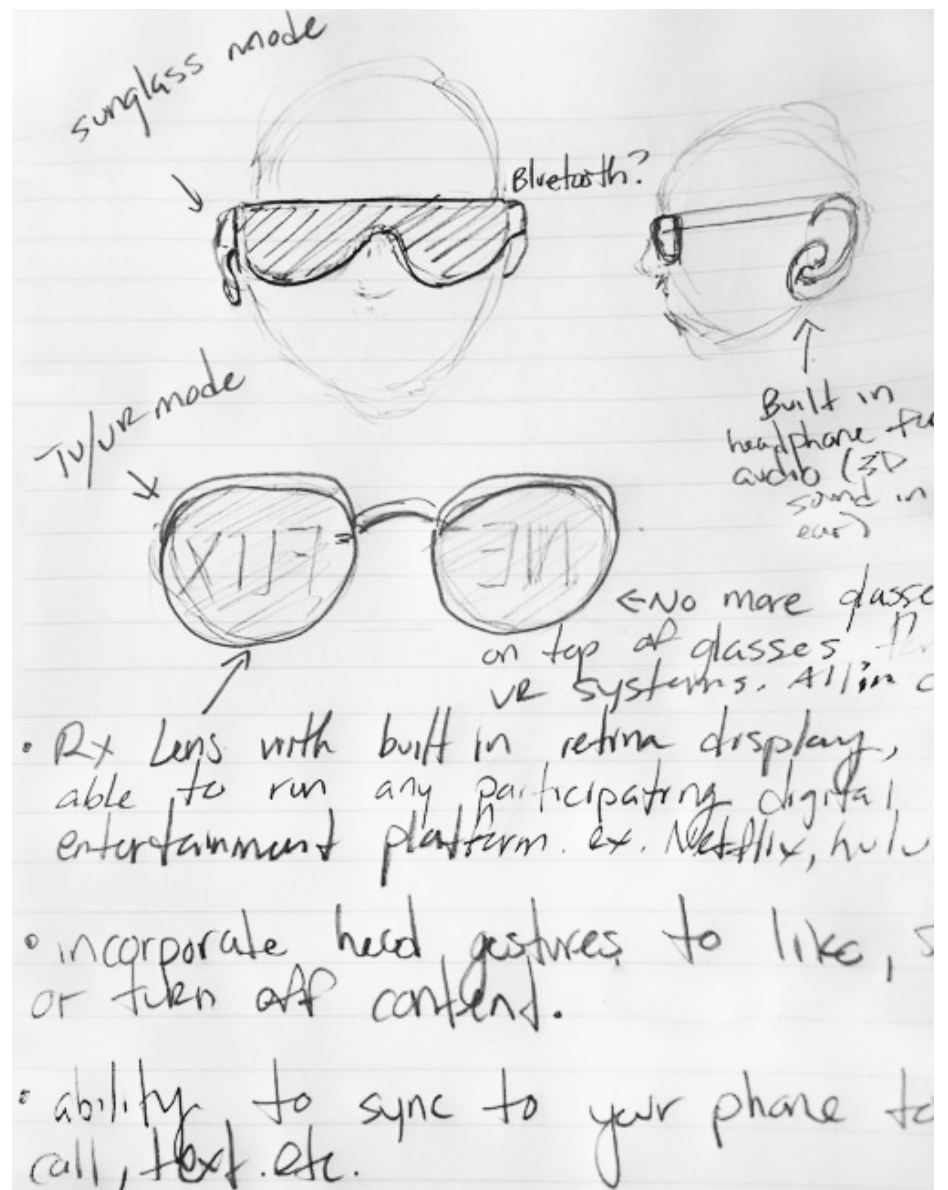 sunglass mode
Bluetooth?
TV/VR mode
Built in
headphone for
audio (3D
sound in
ear)
←No more glasse
on top of glasses for
VR systems. All in o
• Rx Lens with built in retina display,
able to run any participating digital
entertainment platform. ex. Netflix, hulu
• incorporate head gestures to like, s
or turn off content.
• ability to sync to your phone to
call, text. etc.